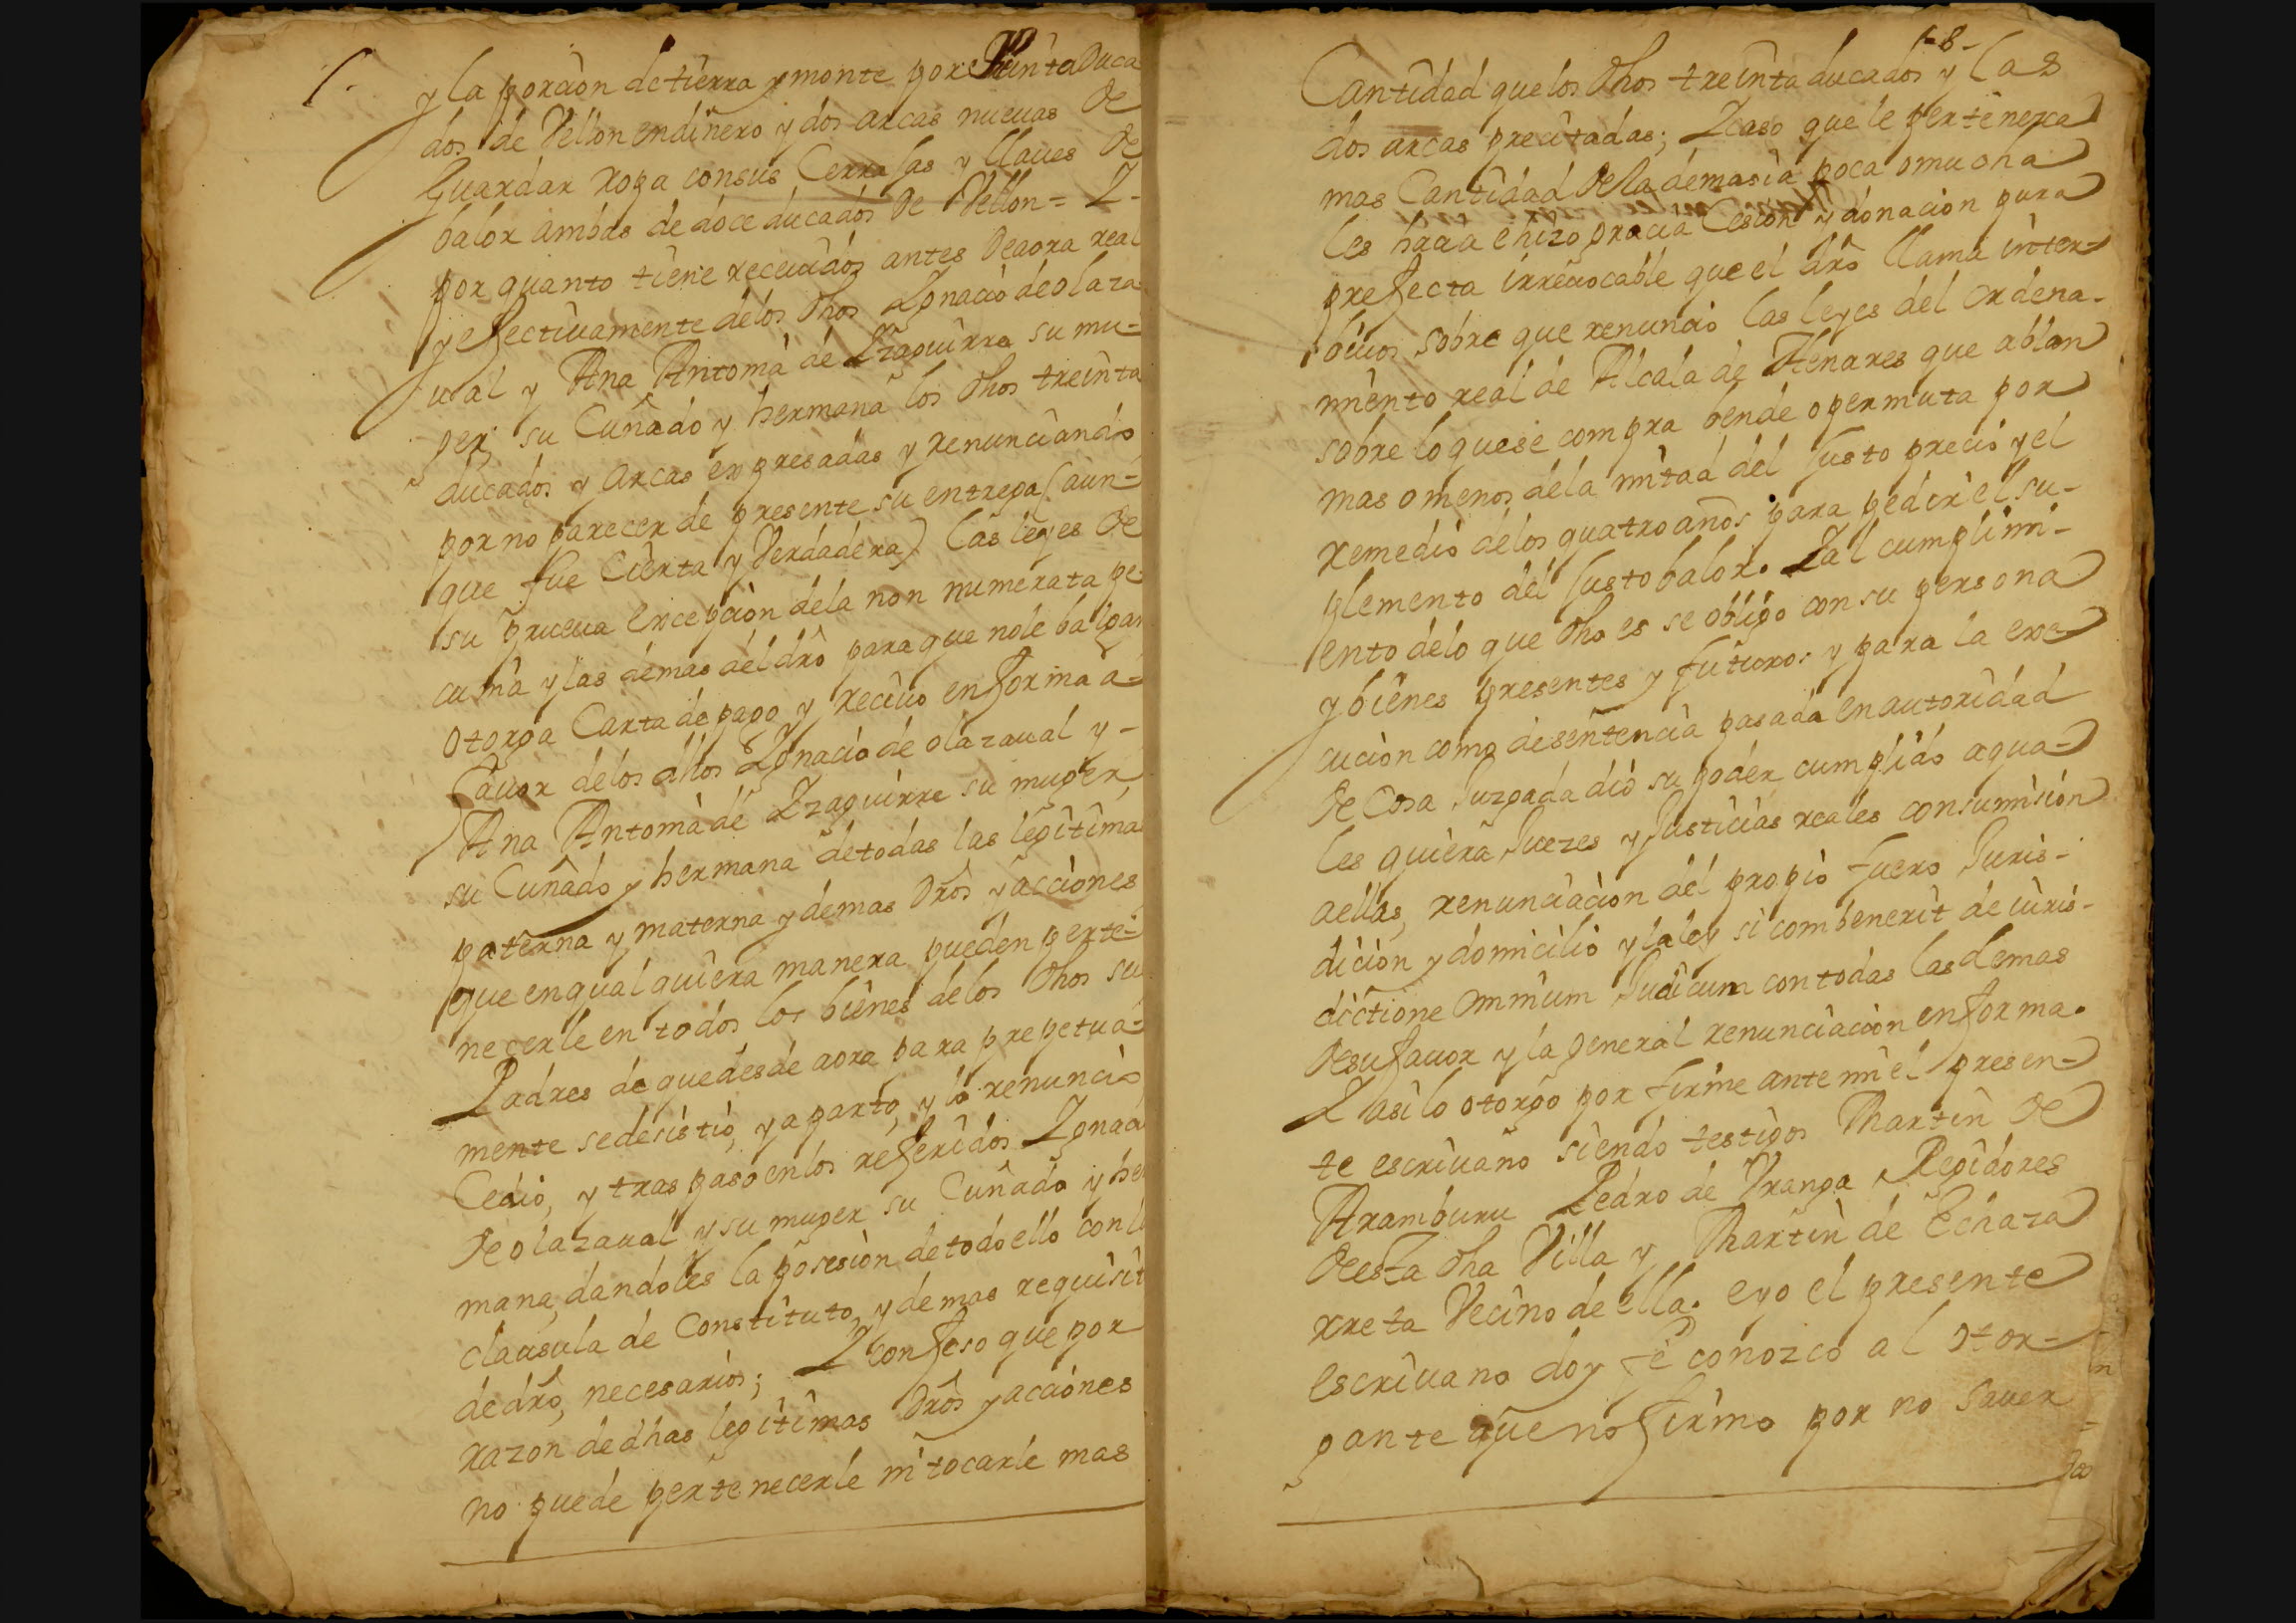 y la porcion de tierra y monte por treinta Duca
dos de Vellon en dinero y dos arcas nuevas De
Guardar Ropa con sus Cerrajas y llaves De
balor ambas de doce ducados De Vellon = Y-
por quanto tiene receuidos antes De aora real
y efectiuamente de los dhos Ygnacio de olaza
ual y Ana Antonia de Yzaguirre su mu-
ger, su Cuñado y hermana los dhos treinta
ducados y arcas expresadas y renunciando
por no parecer de presente su entrega (aun-
que fue Cierta y Verdadera) las leyes De
su prueua excepcion dela non numerata pe-
cunia y las demas del dro para que no le balgan
otorga Carta de pago y reciuo en forma a-
fauor delos dhos Ygnacio de olazaual y-
Ana Antonia de Yzaguirre su muger,
su Cuñado y hermana de todas las legitimas
paterna y materna y demas Dros y acciones
que en qual quiera manera pueden perte-
necerle en todos los bienes delos dhos sus
Padres de que desde aora para prepetua-
mente se desistió, y aparto, y lo renunció
Cedio, y traspaso en los referidos Ygnacio
De olazaual y su muger su Cuñado y her
mana, dandoles la posesion de todo ello con la
clausula de Constituto, y demas requisit
de dro, necesarios; Y confeso que por
razon de dhas legitimas Dros y acciones
no puede pertenecerle ni tocarle mas
-8-
Cantidad que los dhos treinta ducados y las
dos arcas precitadas; Y caso que le pertenezca
mas Cantidad De la demasia poca o mucha
les hacia e hizo gracia Cesion y donacion pura
prefecta irreuocable que el dro llama inter-
biuos sobre que renuncio las leyes del ordena-
miento real de Alcala de Henares que ablan
sobre lo que se compra bende o permuta por
mas o menos dela mitad del Justo precio y el
remedio delos quatro años para pedir el su-
plemento del Justo balor. Y al cumplimi-
ento delo que dho es se obligo con su persona
y bienes presentes y futuros y para la exe-
cucion como de sentencia pasada en autoridad
De Cosa Juzgada dio su poder cumplido a qua-
les quiera Juezes y Justicias reales con sumision
a ellas, renunciacion del propio fuero Juris-
dicion y domicilio y la ley si combenerit de iuris-
dictione omnium Judicum con todas las demas
De su fauor y la general renunciacion en forma.
Y asi lo otorgo por firme ante mi el presen-
te escriuano siendo testigos Martin De
Aramburu Pedro de Vranga Regidores
De esta dha Villa y Martin de Echaza
rreta Vecino de ella. e yo el presente
escriuano doy fe conozco al otor-
gante que no firmo por no sauer